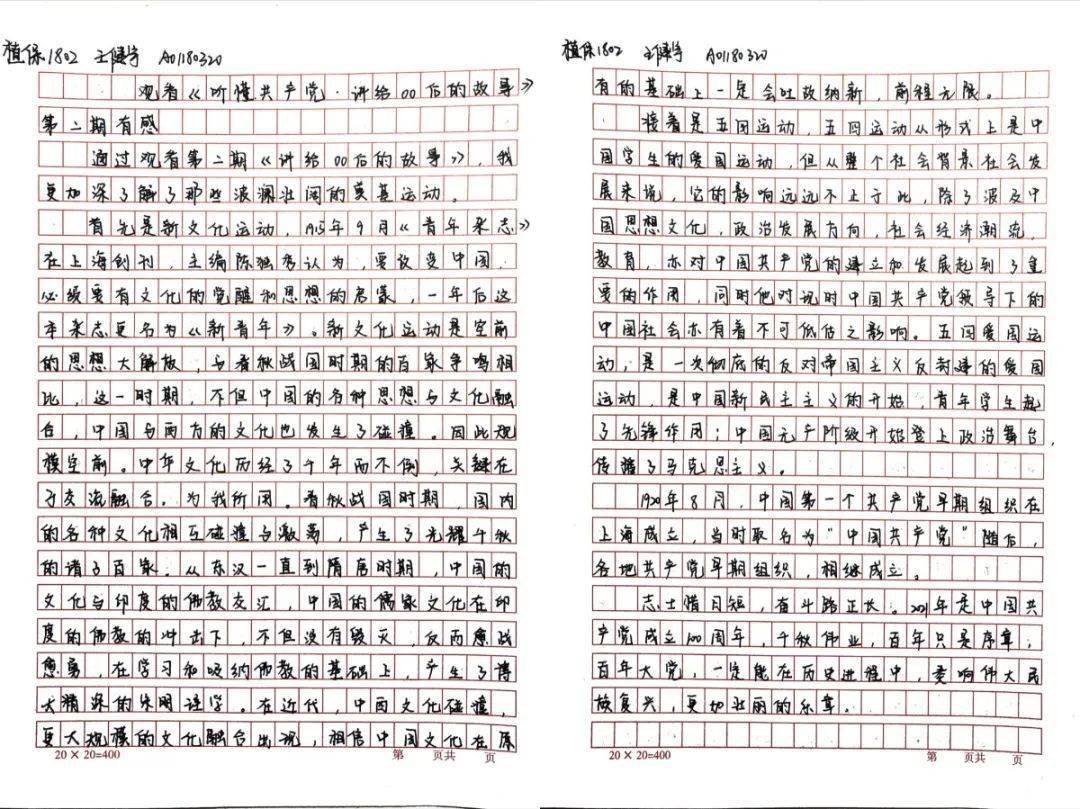 植保1802 王健宇 A01180320
观看《听懂共产党·讲给00后的故事》
第二期有感
通过观看第二期《讲给00后的故事》，我
更加深了解了那些波澜壮阔的奠基运动。
首先是新文化运动，1915年9月《青年杂志》
在上海创刊，主编陈独秀认为，要改变中国，
必须要有文化的觉醒和思想的启蒙，一年后这
本杂志更名为《新青年》。新文化运动是空前
的思想大解放，与春秋战国时期的百家争鸣相
比，这一时期，不但中国的各种思想与文化融
合，中国与西方的文化也发生了碰撞。因此规
模空前。中华文化历经了千年而不倒，关键在
于交流融合。为我所用。春秋战国时期，国内
的各种文化相互碰撞与激荡，产生了光耀千秋
的诸子百家。从东汉一直到隋唐时期，中国的
文化与印度的佛教交汇，中国的儒家文化在印
度的佛教的冲击下，不但没有毁灭，反而愈战
愈勇，在学习和吸纳佛教的基础上，产生了博
大精深的朱明理学。在近代，中西文化碰撞，
更大规模的文化融合出现，相信中国文化在原
20×20=400 第 页共 页
植保1802 王健宇 A01180320
有的基础上一定会吐故纳新，前程无限。
接着是五四运动，五四运动从形式上是中
国学生的爱国运动，但从整个社会背景社会发
展来说，它的影响远远不止于此，除了波及中
国思想文化，政治发展方向，社会经济潮流，
教育，亦对中国共产党的建立和发展起到了重
要的作用，同时他对现时中国共产党领导下的
中国社会亦有着不可低估之影响。五四爱国运
动，是一次彻底的反对帝国主义反封建的爱国
运动，是中国新民主主义的开始，青年学生起
了先锋作用；中国无产阶级开始登上政治舞台，
传播了马克思主义。
1920年8月，中国第一个共产党早期组织在
上海成立，当时取名为“中国共产党”随后，
各地共产党早期组织，相继成立。
志士惜日短，奋斗路正长。2021年是中国共
产党成立100周年，千秋伟业，百年只是序章；
百年大党，一定能在历史进程中，奏响伟大民
族复兴，更加壮丽的乐章。
20×20=400 第 页共 页